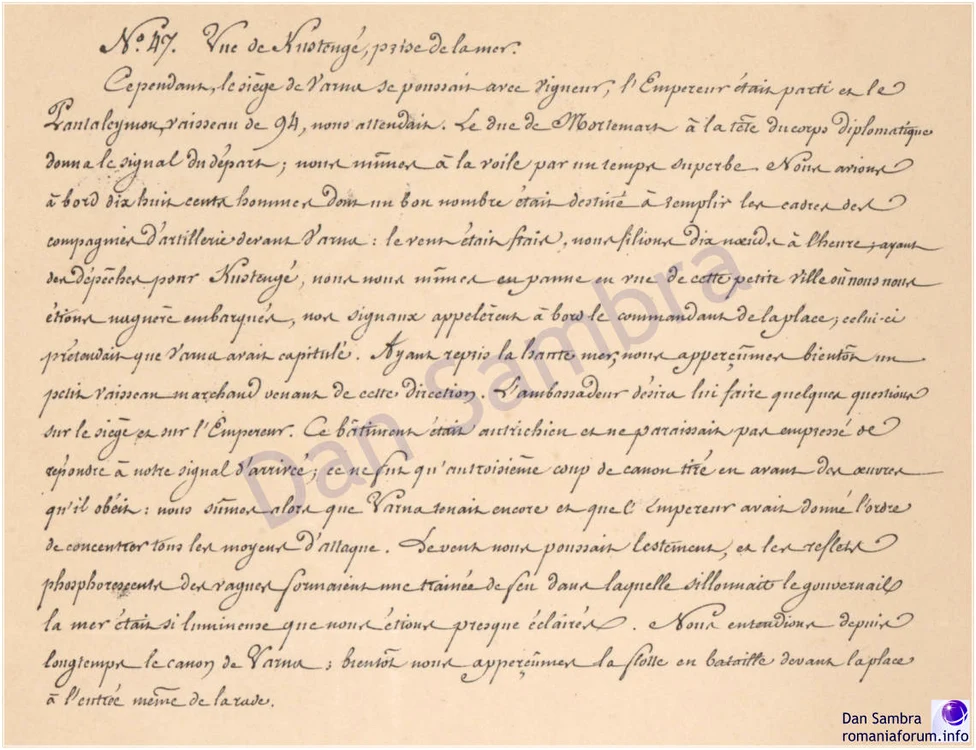 No. 47. Vue de Kustengé, prise de la mer.
Cependant, le siège de Varna se poussait avec vigueur, l'Empereur était parti et le
Pantaleymon, vaisseau de 94, nous attendait. Le duc de Mortemart à la tête du corps diplomatique
donna le signal du départ; nous mîmes à la voile par un temps superbe. Nous avions
à bord dix huit cents hommes dont un bon nombre était destiné à remplir les cadres des
compagnies d'artillerie devant Varna: le vent était frais, nous filions dix nœuds à l'heure; ayant
des dépêches pour Kustengé, nous nous mîmes en panne en vue de cette petite ville où nous nous
étions naguère embarqués, nos signaux appelèrent à bord le commandant de la place; celui-ci
prétendait que Varna avait capitulé. Ayant repris la haute mer, nous apperçûmes bientôt un
petit vaisseau marchand venant de cette direction. L'ambassadeur désira lui faire quelques questions
sur le siège et sur l'Empereur. Ce bâtiment était autrichien et ne paraissait pas empressé de
répondre à notre signal d'arrivée; ce ne fut qu'au troisième coup de canon tiré en avant des œuvres
qu'il obéit: nous sûmes alors que Varna tenait encore et que l'Empereur avait donné l'ordre
de concentrer tous les moyens d'attaque. Le vent nous poussait lestement, et les reflets
phosphorescents des vagues formaient une trainée de feu dans laquelle sillonnait le gouvernail
la mer était si lumineuse que nous étions presque éclairés. Nous entendions depuis
longtemps le canon de Varna; bientôt nous apperçûmes la flotte en bataille devant la place
à l'entrée même de la rade.
Dan Sambra
Dan Sambra
romaniaforum.info